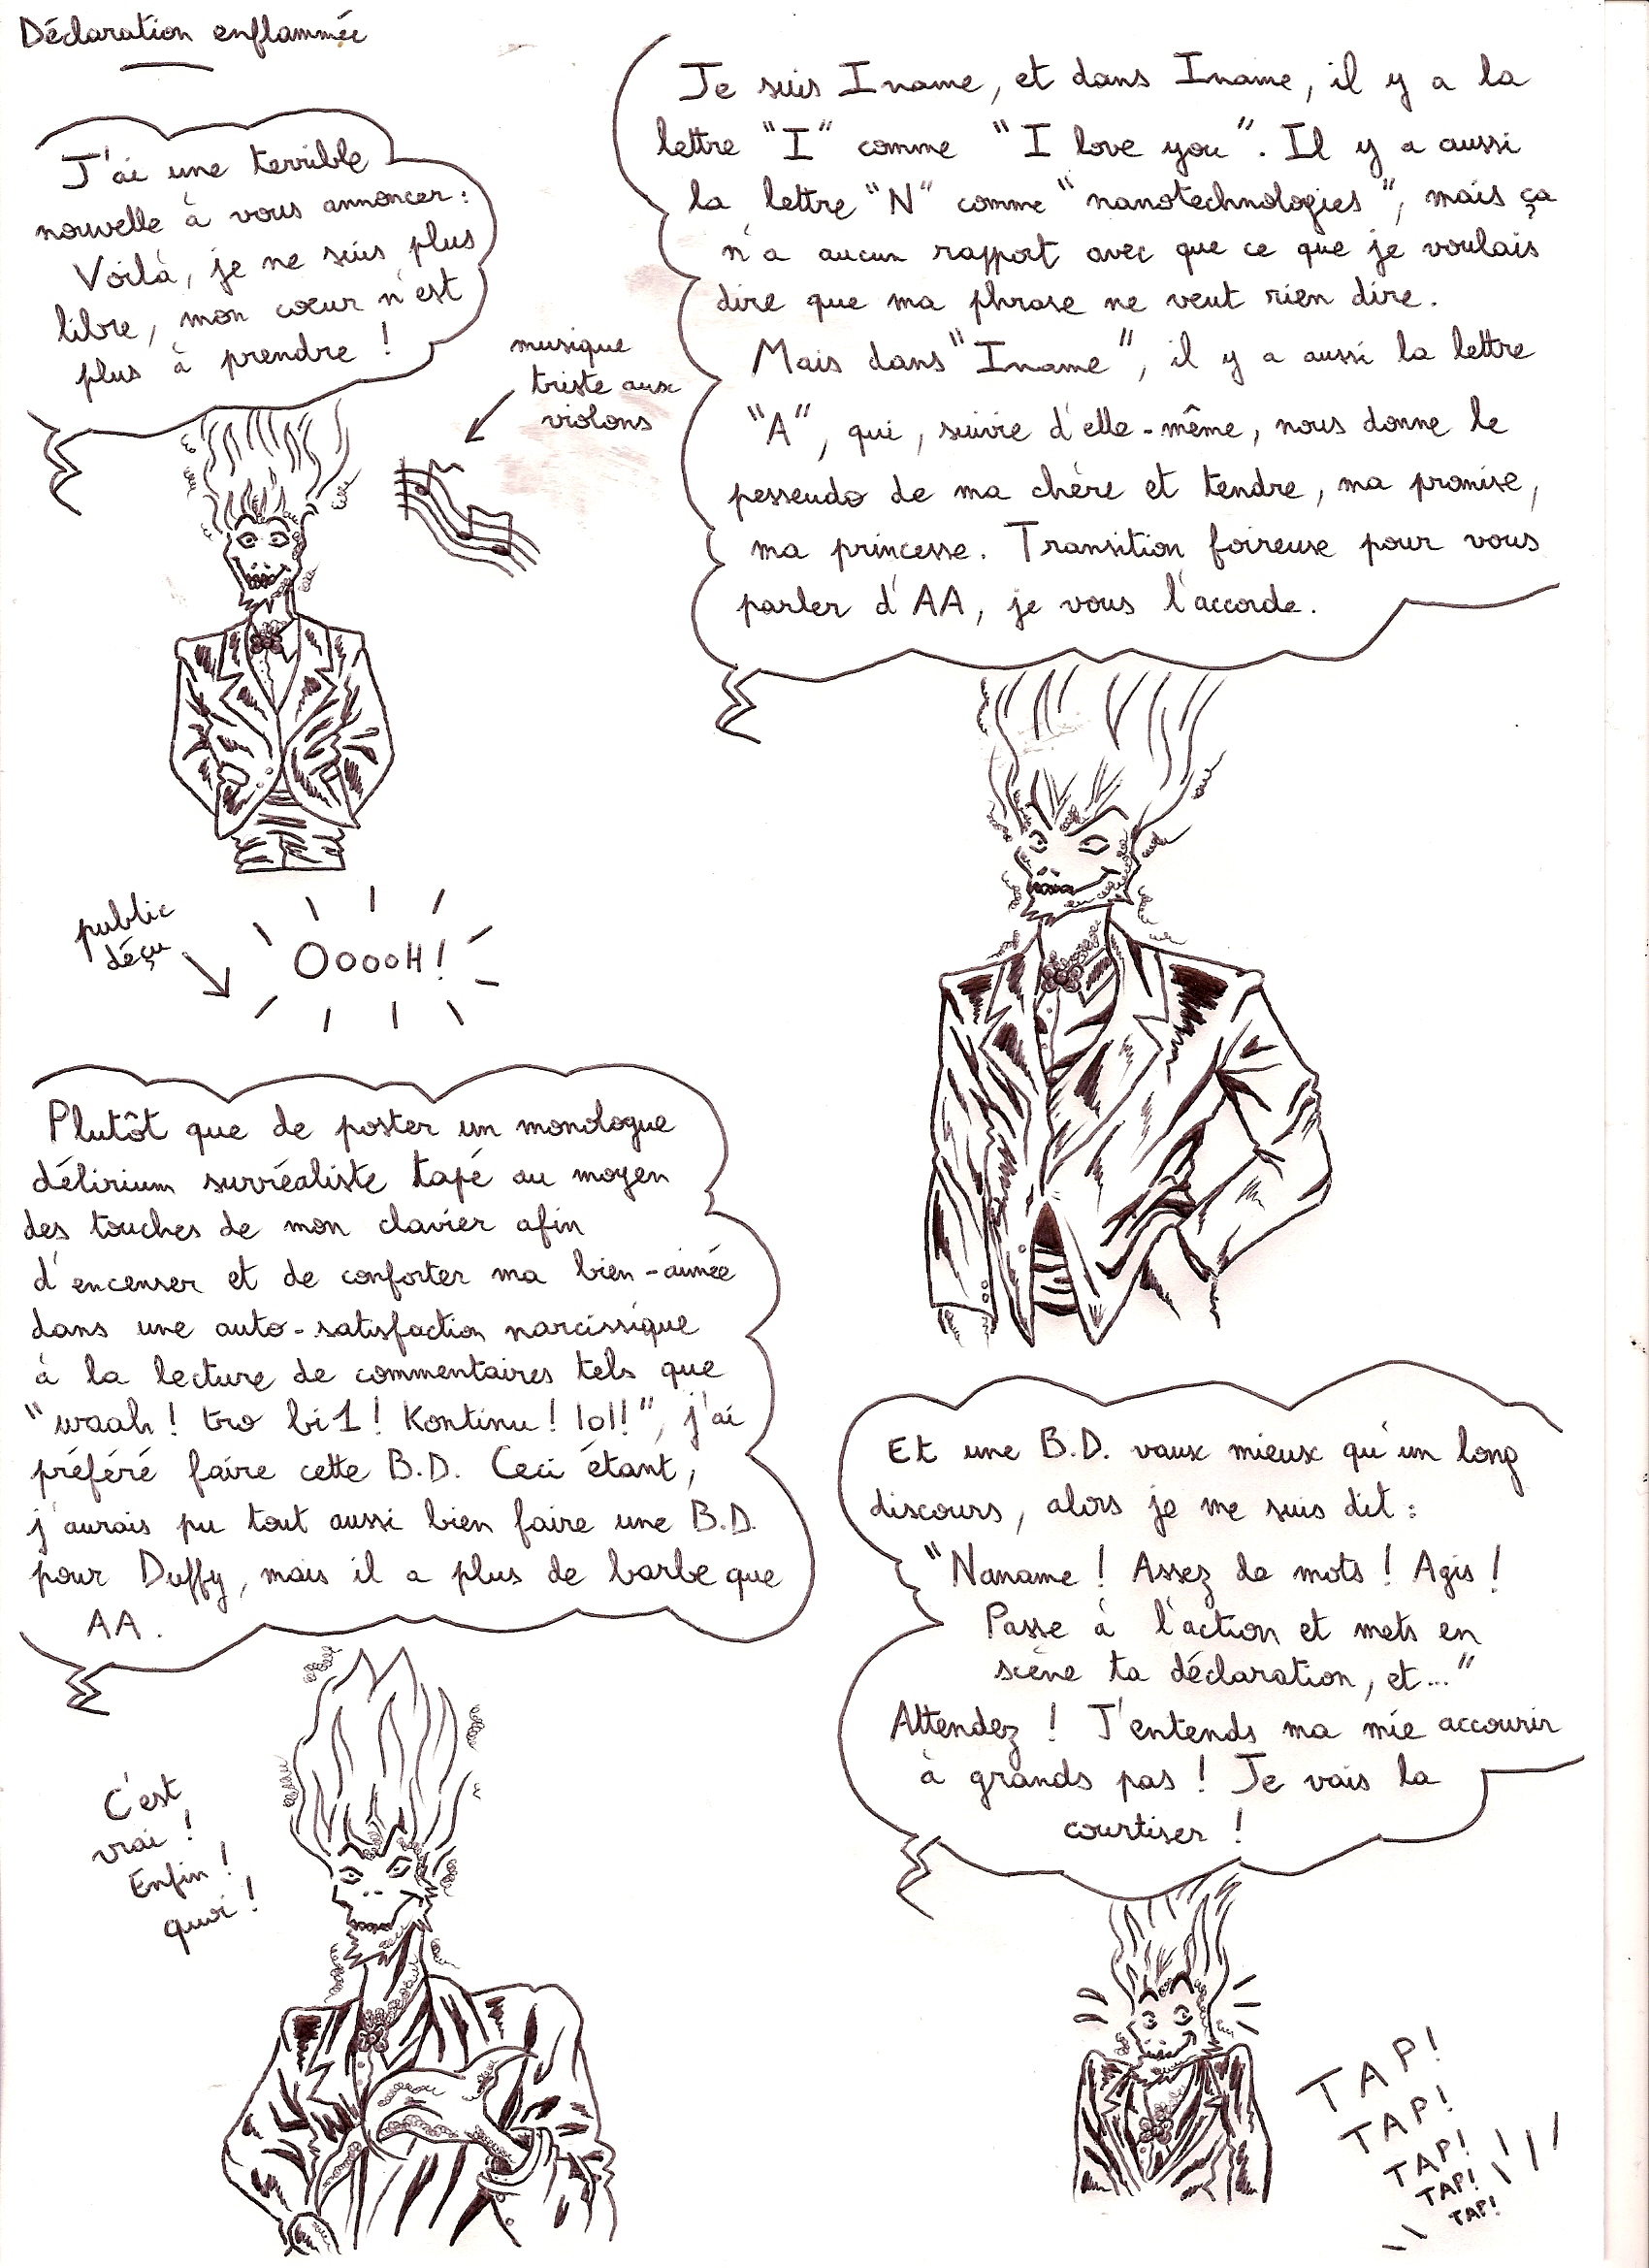 Déclaration enflammée
J'ai une terrible
nouvelle à vous annoncer :
Voilà, je ne suis plus
libre, mon cœur n'est
plus à prendre !
musique
triste aux
violons
public
déçu
OoooH !
Je suis Iname, et dans Iname, il y a la
lettre "I" comme "I love you". Il y a aussi
la lettre "N" comme "nanotechnologies", mais ça
n'a aucun rapport avec que ce que je voulais
dire que ma phrase ne veut rien dire.
Mais dans "Iname", il y a aussi la lettre
"A", qui, suivie d'elle-même, nous donne le
pesseudo de ma chère et tendre, ma promise,
ma princesse. Transition foireuse pour vous
parler d'AA, je vous l'accorde.
Plutôt que de poster un monologue
délirium surréaliste tapé au moyen
des touches de mon clavier afin
d'encenser et de conforter ma bien-aimée
dans une auto-satisfaction narcissique
à la lecture de commentaires tels que
"waah ! tro bi1 ! Kontinu ! lol!", j'ai
préféré faire cette B.D. Ceci étant,
j'aurais pu tout aussi bien faire une B.D.
pour Duffy, mais il a plus de barbe que
AA.
C'est
vrai !
Enfin !
quoi !
Et une B.D. vaux mieux qu'un long
discours, alors je me suis dit :
"Naname ! Assez de mots ! Agis !
Passe à l'action et mets en
scène ta déclaration, et..."
Attendez ! J'entends ma mie accourir
à grands pas ! Je vais la
courtiser !
TAP!
TAP!
TAP!
TAP!
TAP!